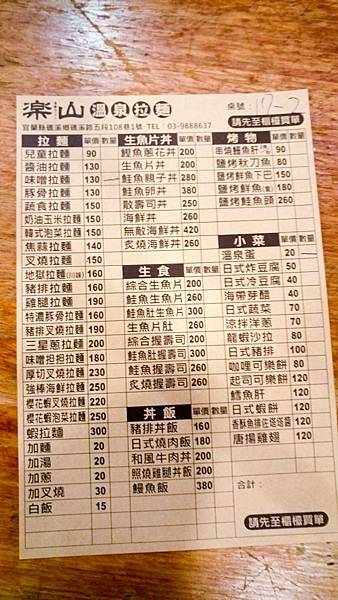 楽山 溫泉拉麵
桌號: 17-2
宜蘭縣礁溪鄉礁溪路五段108巷1號 TEL：03-9888637
請先至櫃檯買單
拉麵 單價 數量
兒童拉麵 90
醬油拉麵 150
味噌拉麵 130
豚骨拉麵 150
蔬食拉麵 150
奶油玉米拉麵 150
韓式泡菜拉麵 150
焦蒜拉麵 140
叉燒拉麵 150
地獄拉麵 160
豬排拉麵 160
雞腿拉麵 190
特濃豚骨拉麵 160
豬排叉燒拉麵 190
三星蔥拉麵 200
味噌担担拉麵 180
厚切叉燒拉麵 230
強棒海鮮拉麵 250
櫻花蝦叉燒拉麵 220
櫻花蝦泡菜拉麵 250
蝦拉麵 300
加麵 20
加湯 20
加蔥 20
加叉燒 30
白飯 15
生魚片丼 單價 數量
鰹魚蔥花丼 200
生魚片丼 200
鮭魚親子丼 280
鮭魚卵丼 380
散壽司丼 250
海鮮丼 260
無敵海鮮丼 420
炙燒海鮮丼 260
生食 單價 數量
綜合生魚片 200
鮭魚生魚片 260
鮭魚肚生魚片 300
生魚片肚 260
綜合握壽司 200
鮭魚肚握壽司 300
鮭魚握壽司 260
炙燒握壽司 260
丼飯 單價 數量
豬排丼飯 160
日式燒肉飯 180
和風牛肉丼 200
照燒雞腿丼飯 200
鰻魚飯 380
烤物 單價 數量
串燒鰻魚肝
鹽烤秋刀魚 80
鹽烤鮮魚下巴 150
鹽烤鮮魚 180
鹽烤鮭魚頭 260
小菜 單價 數量
溫泉蛋 20
日式炸豆腐 50
日式冷豆腐 40
海帶芽醋 40
日式蔬菜 70
涼拌洋蔥 70
龍蝦沙拉 80
日式豬排 100
咖哩可樂餅 120
起司可樂餅 120
鱈魚肝 120
日式蝦餅 120
香酥魚排佐塔塔醬 120
唐揚雞翅 120
合計：
請先至櫃檯買單